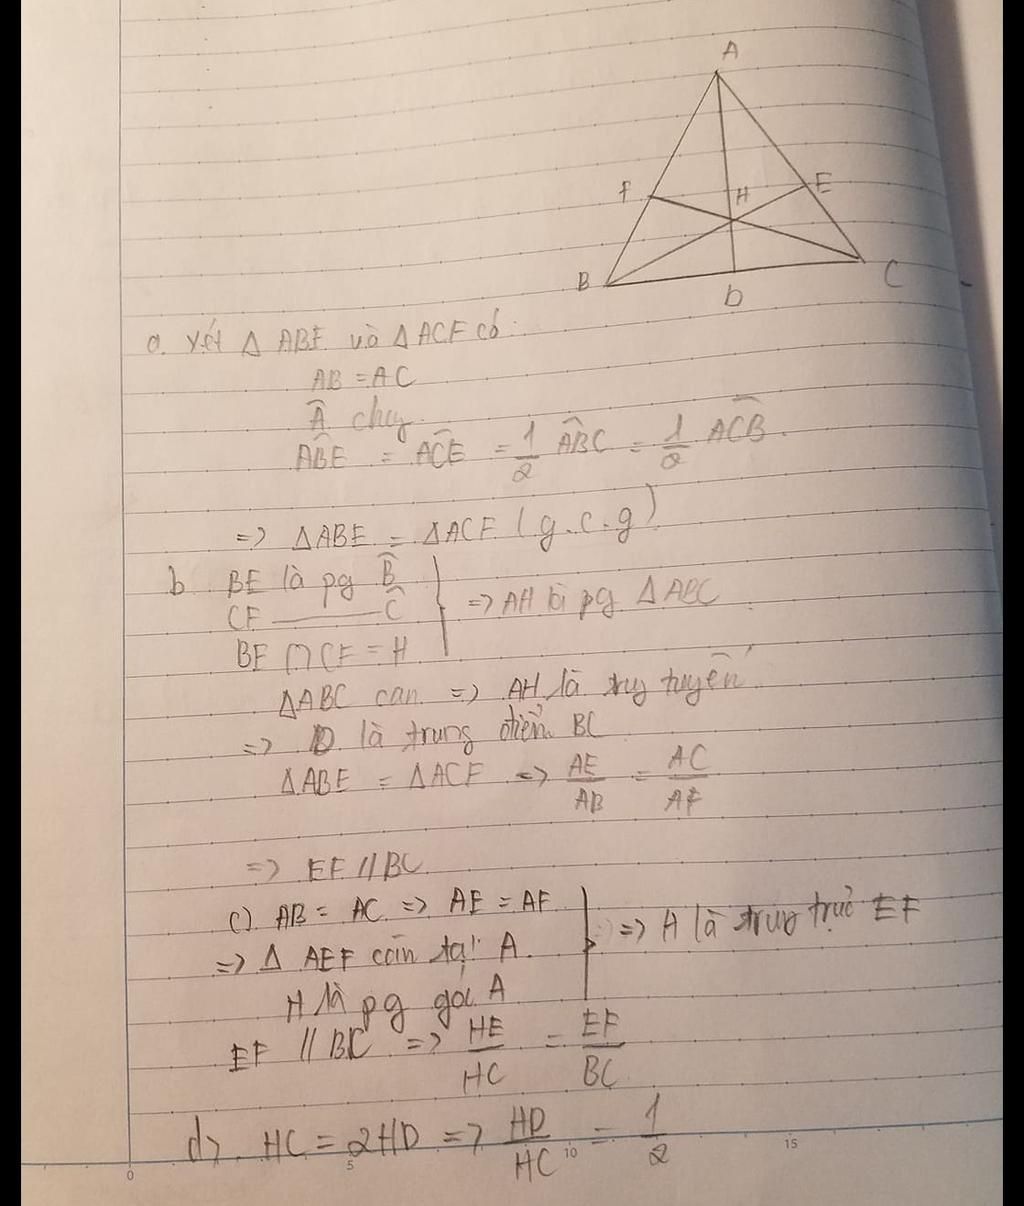 A
F
H
E
B
D
C
a. Xét Δ ABE và Δ ACF có:
AB = AC
Â chug
ABE^ = ACE^ = 1/2 ABC^ = 1/2 ACB^.
=> ΔABE = ΔACF (g.c.g)
b BE là pg B^
CF ——— C^
BE ∩ CF = H
} => AH là pg ΔABC
ΔABC can => AH là trug tuyến
=> D là trung điểm BC
ΔABE = ΔACF => AE/AB = AC/AF
=> EF // BC
c) AB = AC => AE = AF
=> Δ AEF cân tại A.
H là pg góc A
} => H là trug trực EF
EF // BC => HE/HC = EF/BC
d>. HC = 2HD => HD/HC = 1/2
0 5 10 15